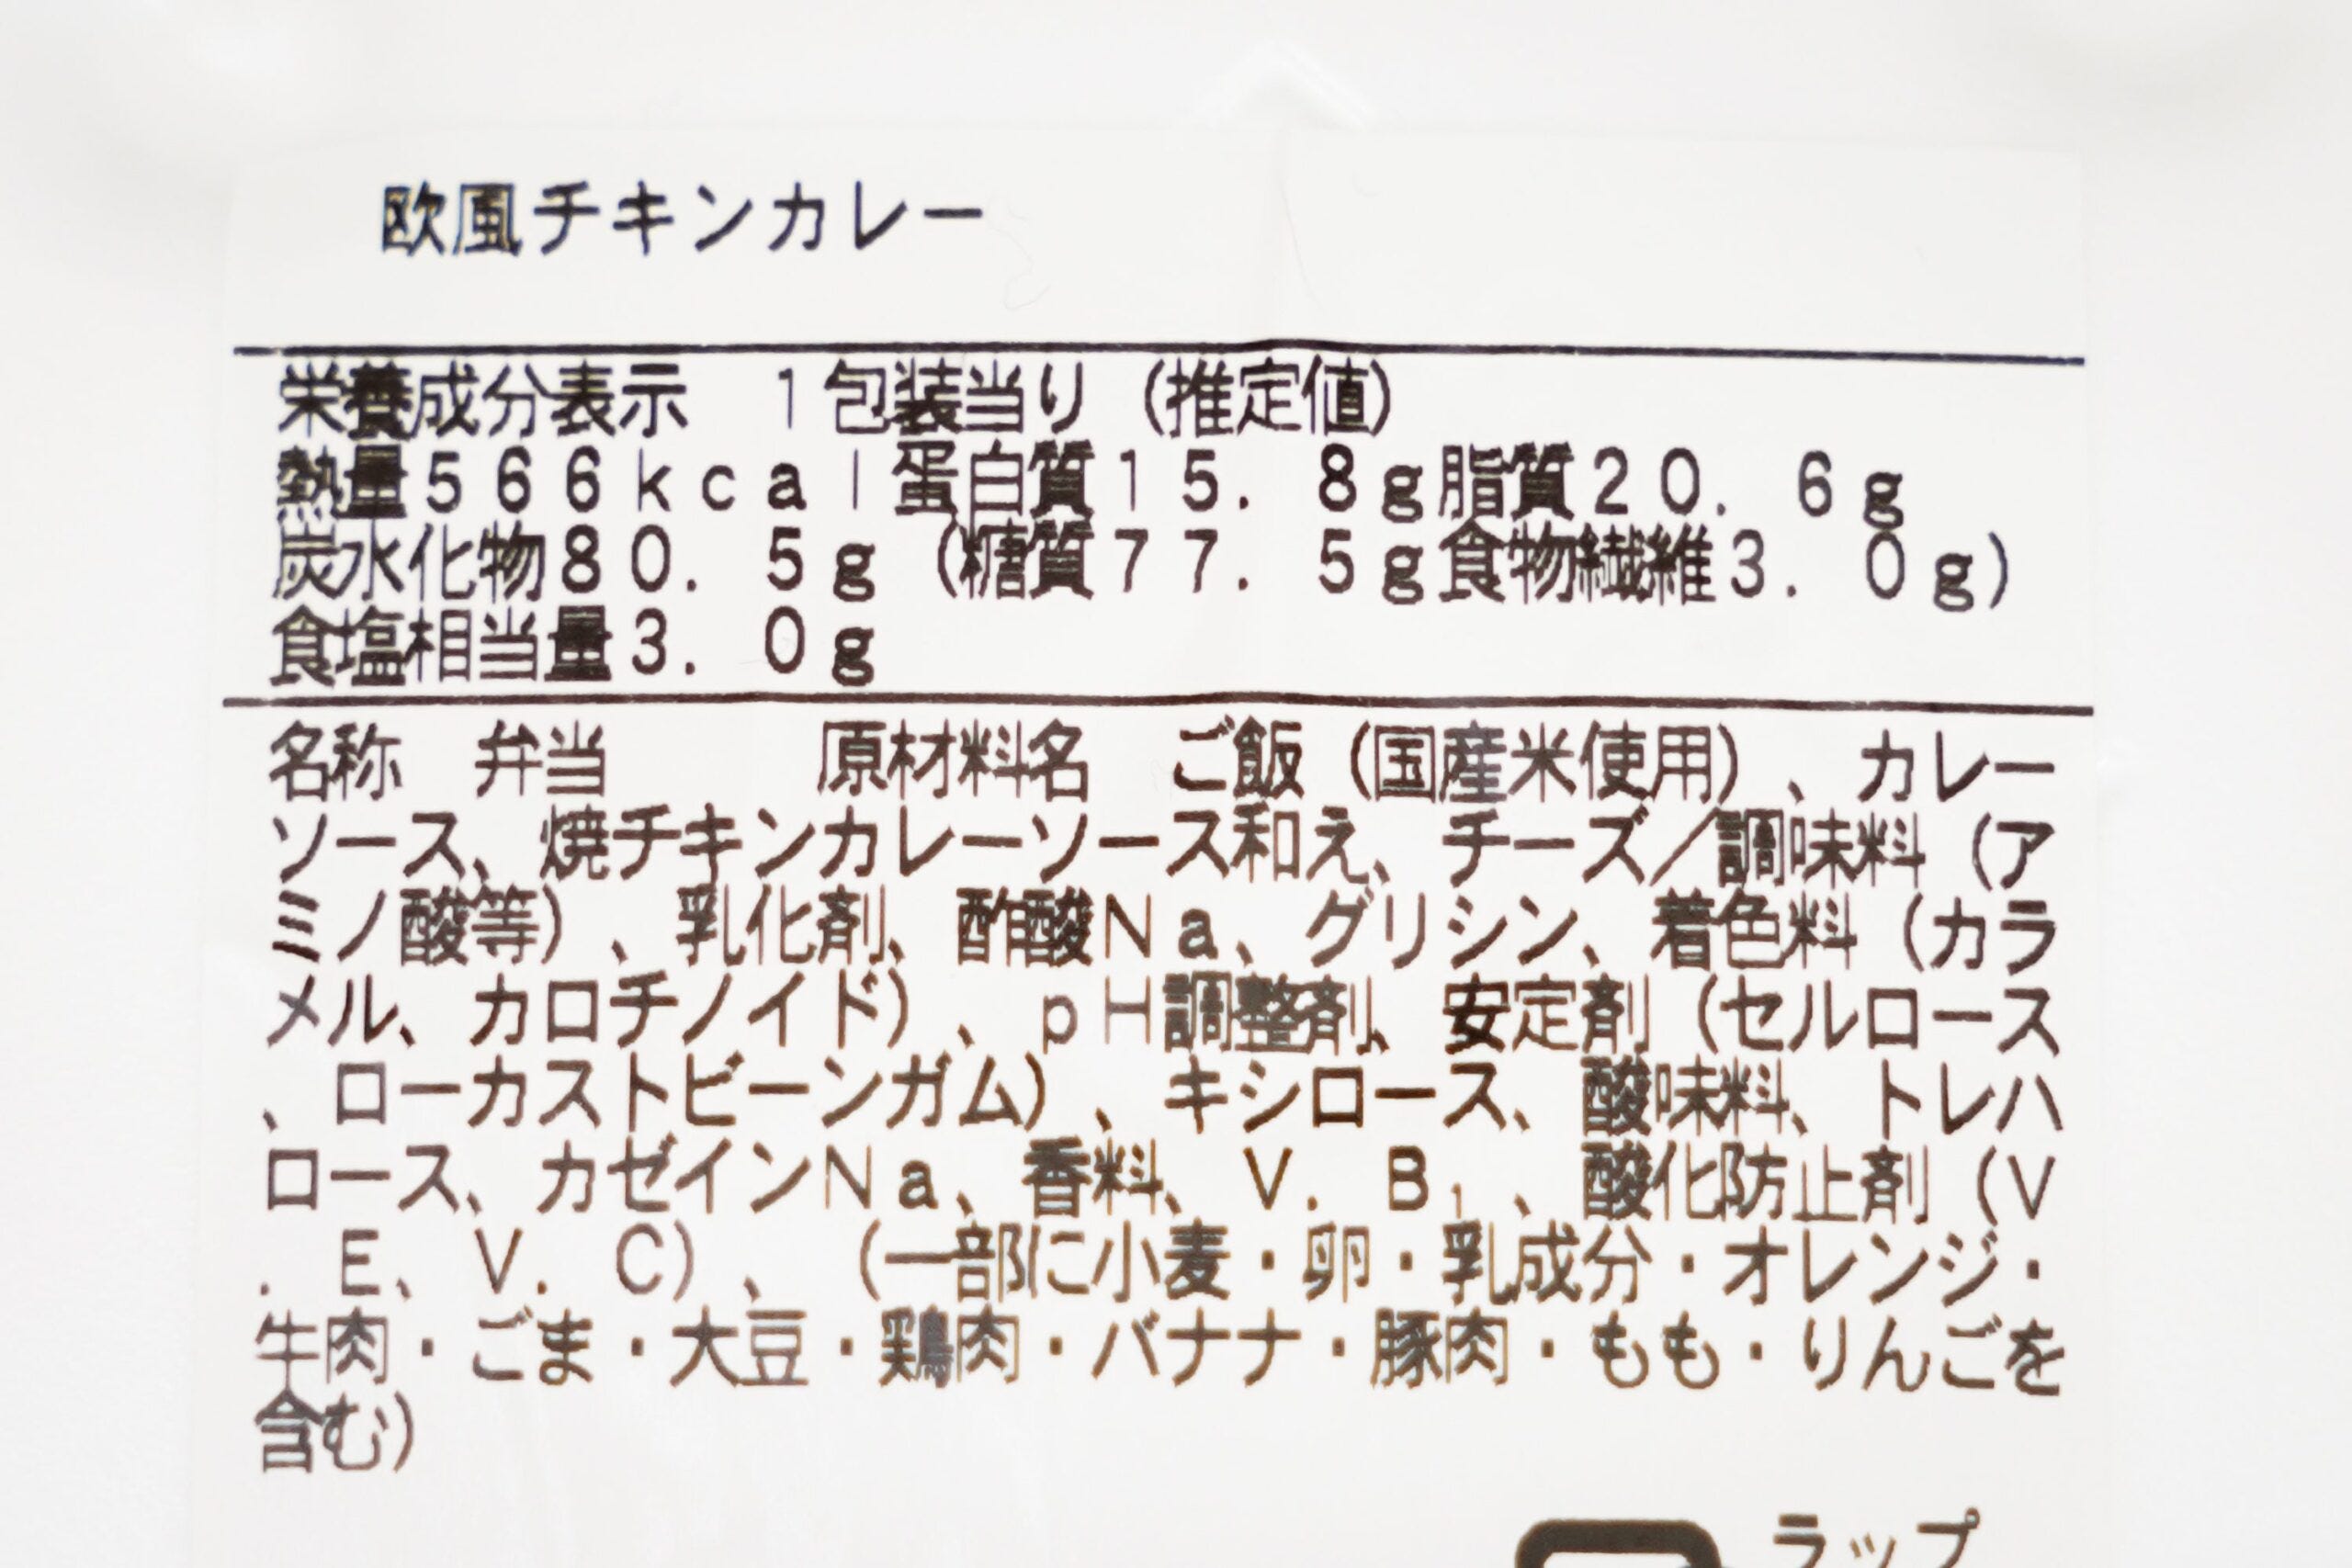 欧風チキンカレー
栄養成分表示　1包装当り（推定値）
熱量566kcal蛋白質15．8g脂質20．6g
炭水化物80．5g（糖質77．5g食物繊維3．0g）
食塩相当量3．0g
名称　弁当　　　原材料名　ご飯（国産米使用）、カレー
ソース、焼チキンカレーソース和え、チーズ／調味料（ア
ミノ酸等）、乳化剤、酢酸Na、グリシン、着色料（カラ
メル、カロチノイド）、pH調整剤、安定剤（セルロース
、ローカストビーンガム）、キシロース、酸味料、トレハ
ロース、カゼインNa、香料、V．B₁、酸化防止剤（V
．E、V．C）、（一部に小麦・卵・乳成分・オレンジ・
牛肉・ごま・大豆・鶏肉・バナナ・豚肉・もも・りんごを
含む）
ラップ